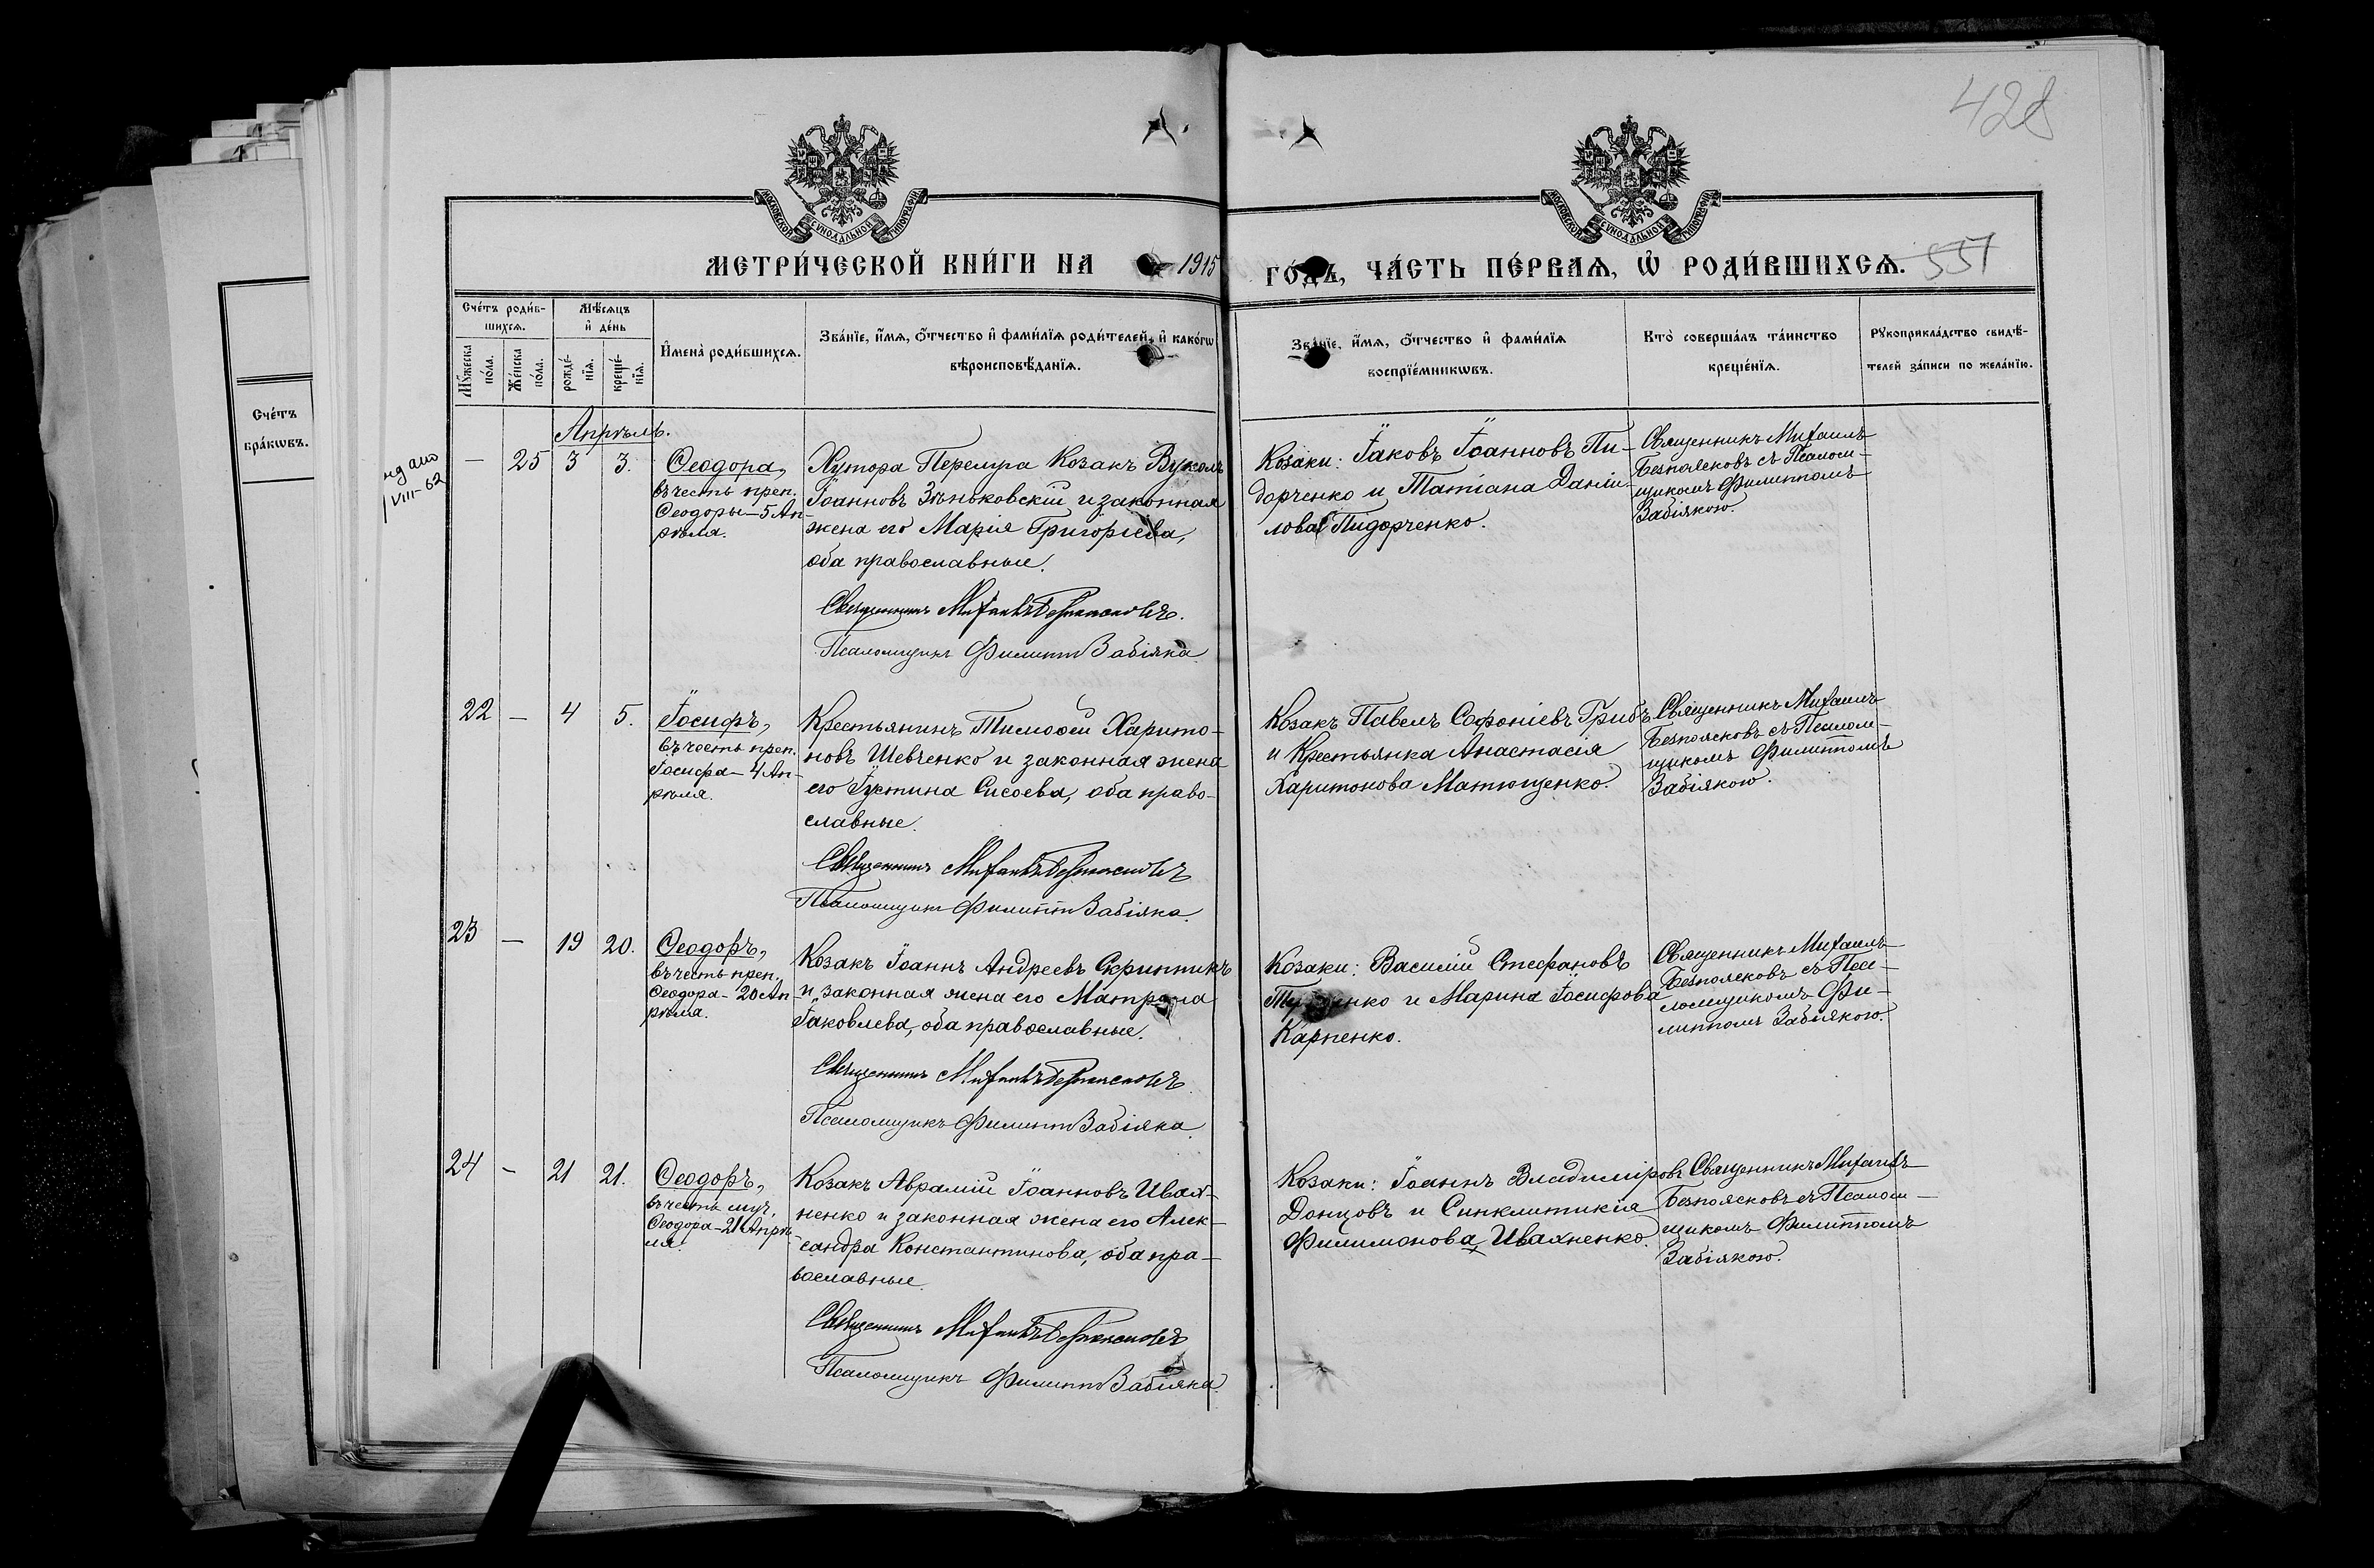 428
МОСКОВСКОЙ СѴНОДАЛЬНОЙ ТИПОГРАФІИ
МОСКОВСКОЙ СѴНОДАЛЬНОЙ ТИПОГРАФІИ
МЕТРИ́ЧЕСКОЙ КНИ́ГИ НА 1915
ГО́ДЪ, ЧА́СТЬ ПЕ́РВАѦ, Ѡ҆ РОДИ́ВШИХСѦ. 557
Сче́тъ
бра́кѡвъ.
Сче́тъ роди́в-
шихсѧ.
Мꙋ́жеска
по́ла.
Же́нска
по́ла.
Мѣ́сѧцъ
и҆ де́нь
рожде́-
нїѧ.
креще́-
нїѧ.
И҆мена̀ роди́вшихсѧ.
Зва́нїе, и҆́мѧ, ѻ҆́тчество и҆ фами́лїѧ роди́телей, и҆ како́гѡ
вѣроисповѣ́данїѧ.
Зва́нїе, и҆́мѧ, ѻ҆́тчество и҆ фами́лїѧ
воспрїе́мникѡвъ.
Кто̀ соверша́лъ та́инство
креще́нїѧ.
Рꙋкоприкла́дство свидѣ́-
телей за́писи по жела́нїю.
Апрѣль.
VIII-62
— 25 3 3.
Ѳеодора,
въ честь преп.
Ѳеодоры — 5 Ап-
рѣля.
Хутора Перелуга Козакъ Вуколъ
Іоанновъ Зѣньковскій и законная
жена его Марія Григоріева,
оба православные.
Священникъ Михаилъ Безпоясковъ.
Псаломщикъ Филиппъ Забіяка.
Козаки: Іаковъ Іоанновъ Пи-
дорченко и Татіана Даніи-
лова Пидорченко.
Священникъ Михаилъ
Безпоясковъ съ Псалом-
щикомъ Филиппомъ
Забіякою.
22 — 4 5.
Іосифъ,
въ честь преп.
Іосифа — 4 Ап-
рѣля.
Крестьянинъ Тимоѳей Харито-
новъ Шевченко и законная жена
его Іустина Сисоева, оба право-
славные.
Священникъ Михаилъ Безпоясковъ
Псаломщикъ Филиппъ Забіяка.
Козакъ Павелъ Софоніевъ Грибъ
и Крестьянка Анастасія
Харитонова Матющенко.
Священникъ Михаилъ
Безпоясковъ съ Псалом-
щикомъ Филиппомъ
Забіякою.
23 — 19 20.
Ѳеодоръ,
въ честь преп.
Ѳеодора — 20 Ап-
рѣля.
Козакъ Іоаннъ Андреевъ Скрипникъ
и законная жена его Матрона
Іаковлева, оба православные.
Священникъ Михаилъ Безпоясковъ
Псаломщикъ Филиппъ Забіяка.
Козаки: Василій Стефановъ
и Марина Іосифова
Карпенко.
Священникъ Михаилъ
Безпоясковъ съ Пса-
ломщикомъ Фи-
липпомъ Забіякою.
24 — 21 21.
Ѳеодоръ,
въ честь муч.
Ѳеодора — 21 Апрѣ-
ля.
Козакъ Аврамій Іоанновъ Ивах-
ненко и законная жена его Алек-
сандра Константинова, оба пра-
вославные.
Священникъ Михаилъ Безпоясковъ
Псаломщикъ Филиппъ Забіяка.
Козаки: Іоаннъ Владиміровъ
Донцовъ и Синклитикія
Филимонова Ивахненко.
Священникъ Михаилъ
Безпоясковъ съ Псалом-
щикомъ Филиппомъ
Забіякою.